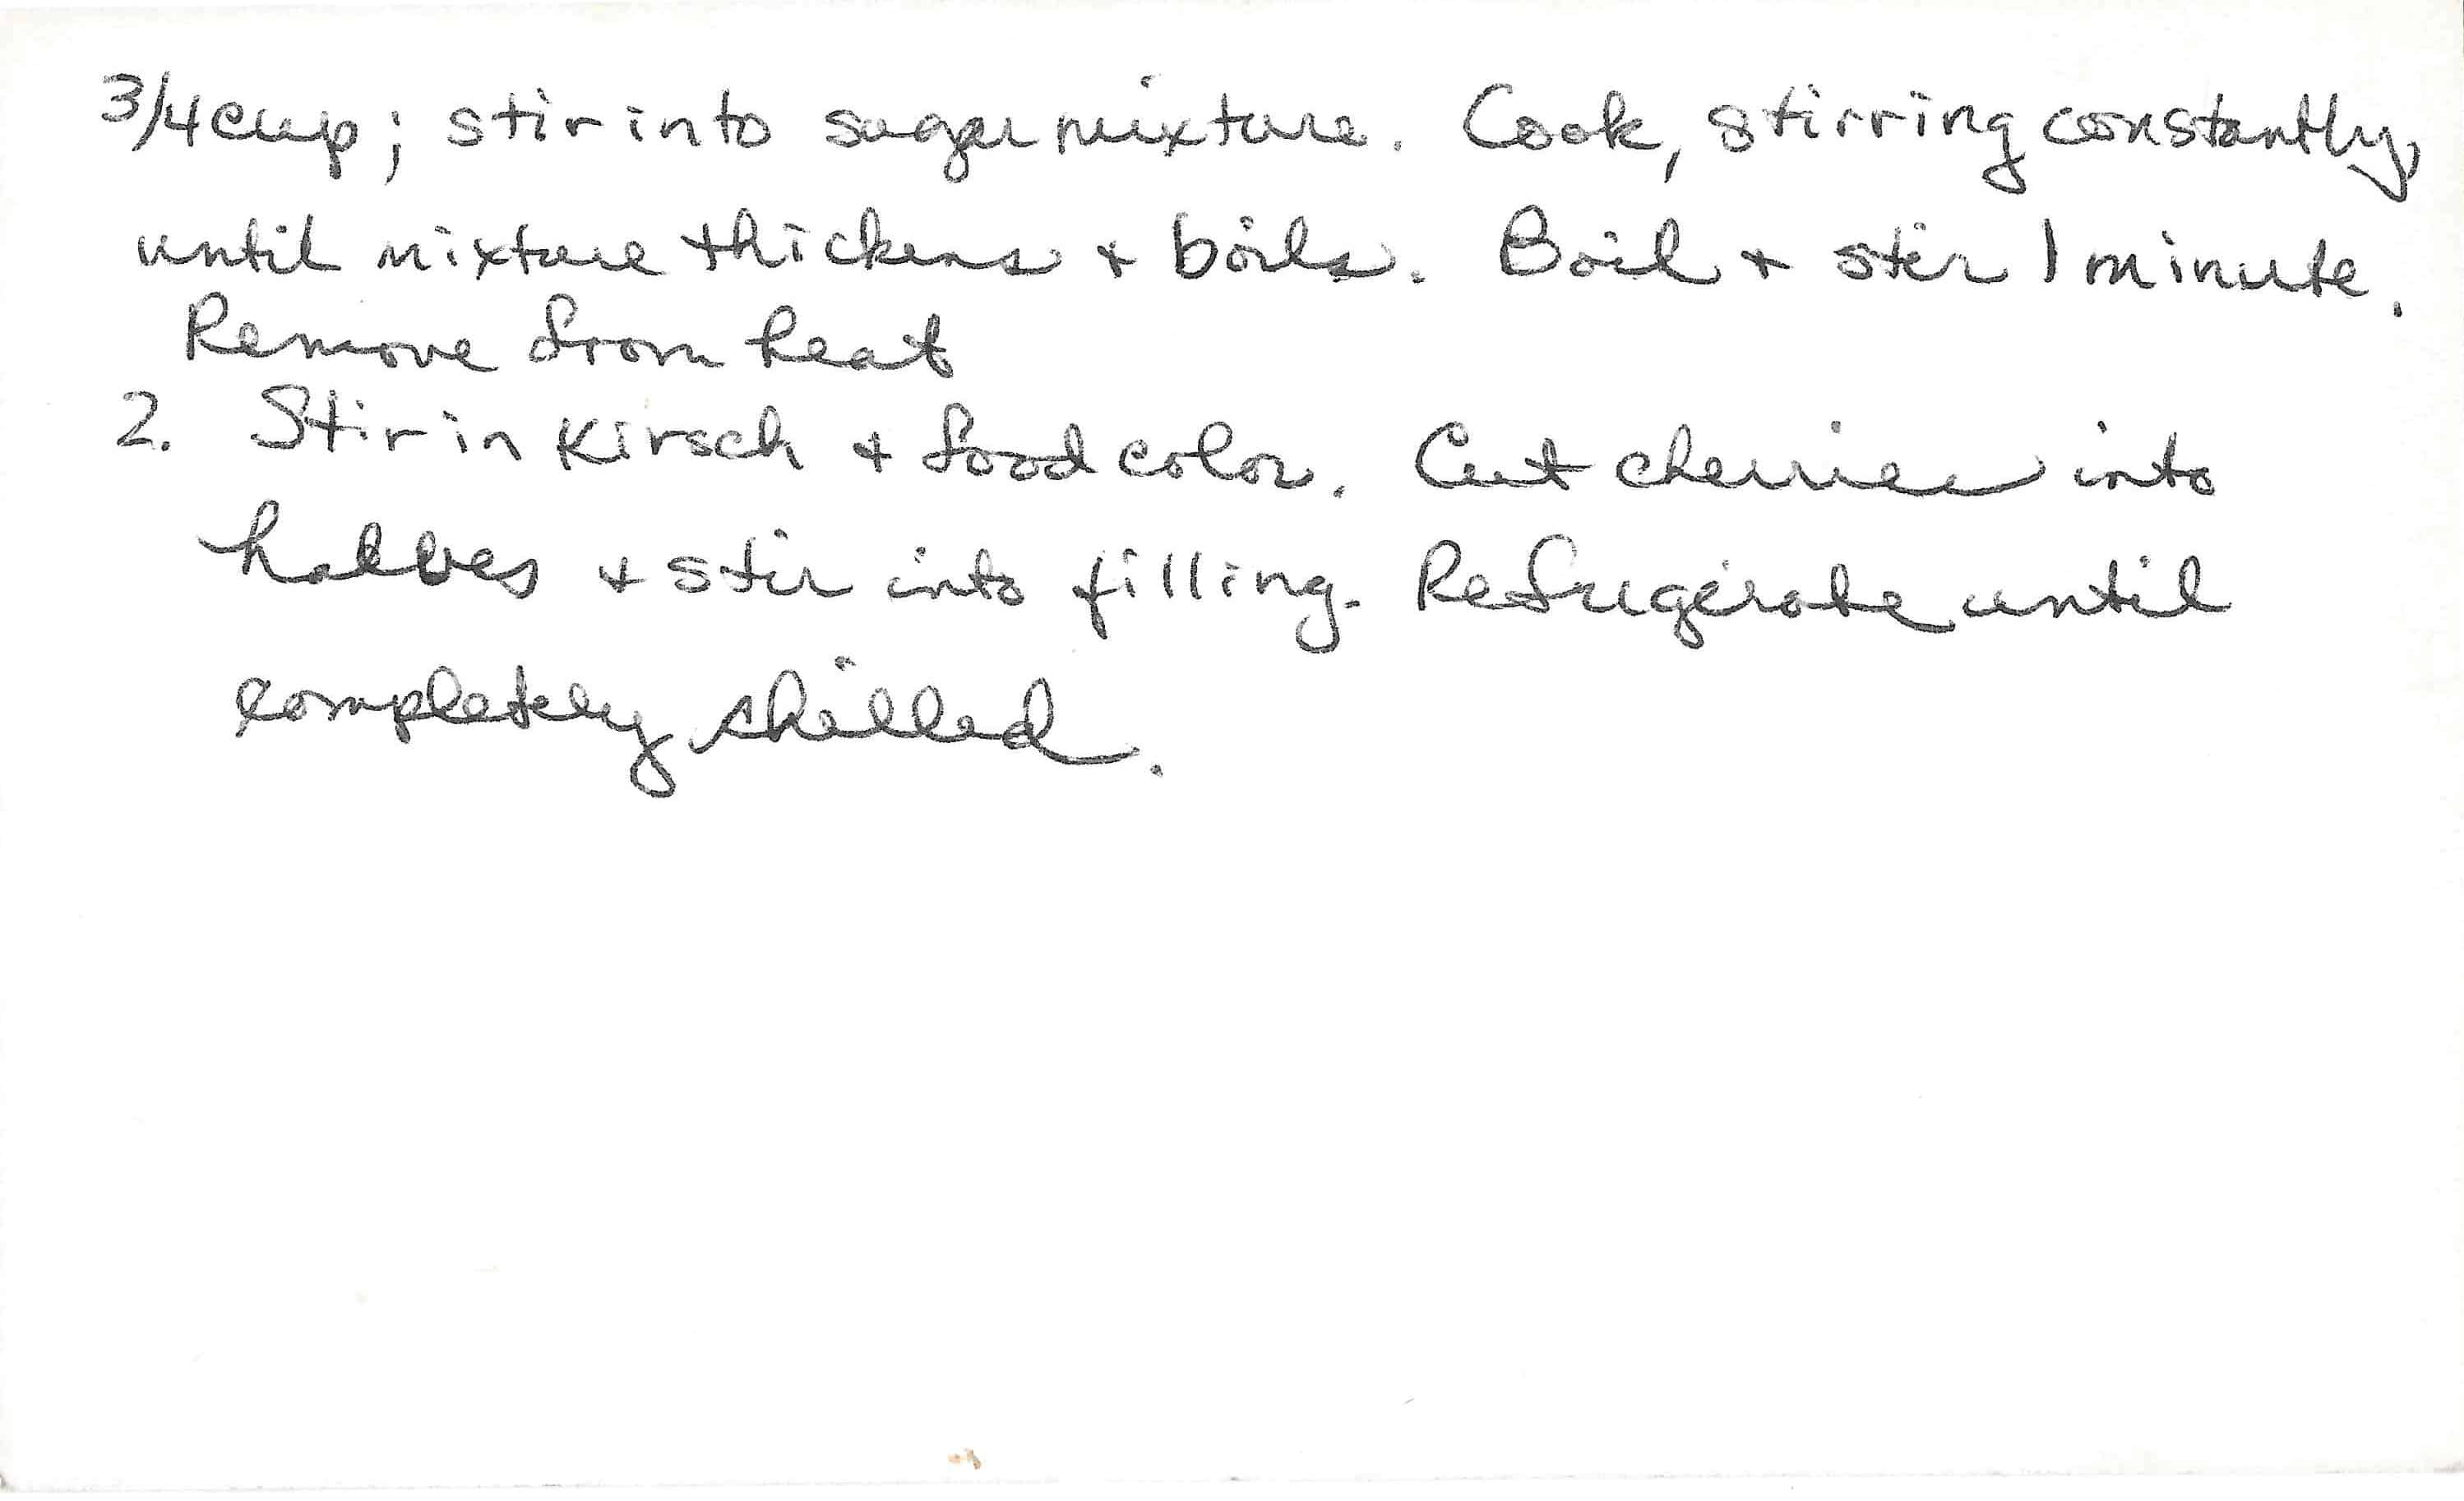 3/4 cup; stir into sugar mixture. Cook, stirring constantly,
until mixture thickens + boils. Boil + stir 1 minute.
Remove from heat
2. Stir in Kirsch + food color. Cut cherries into
halves + stir into filling. Refrigerate until
completely chilled.